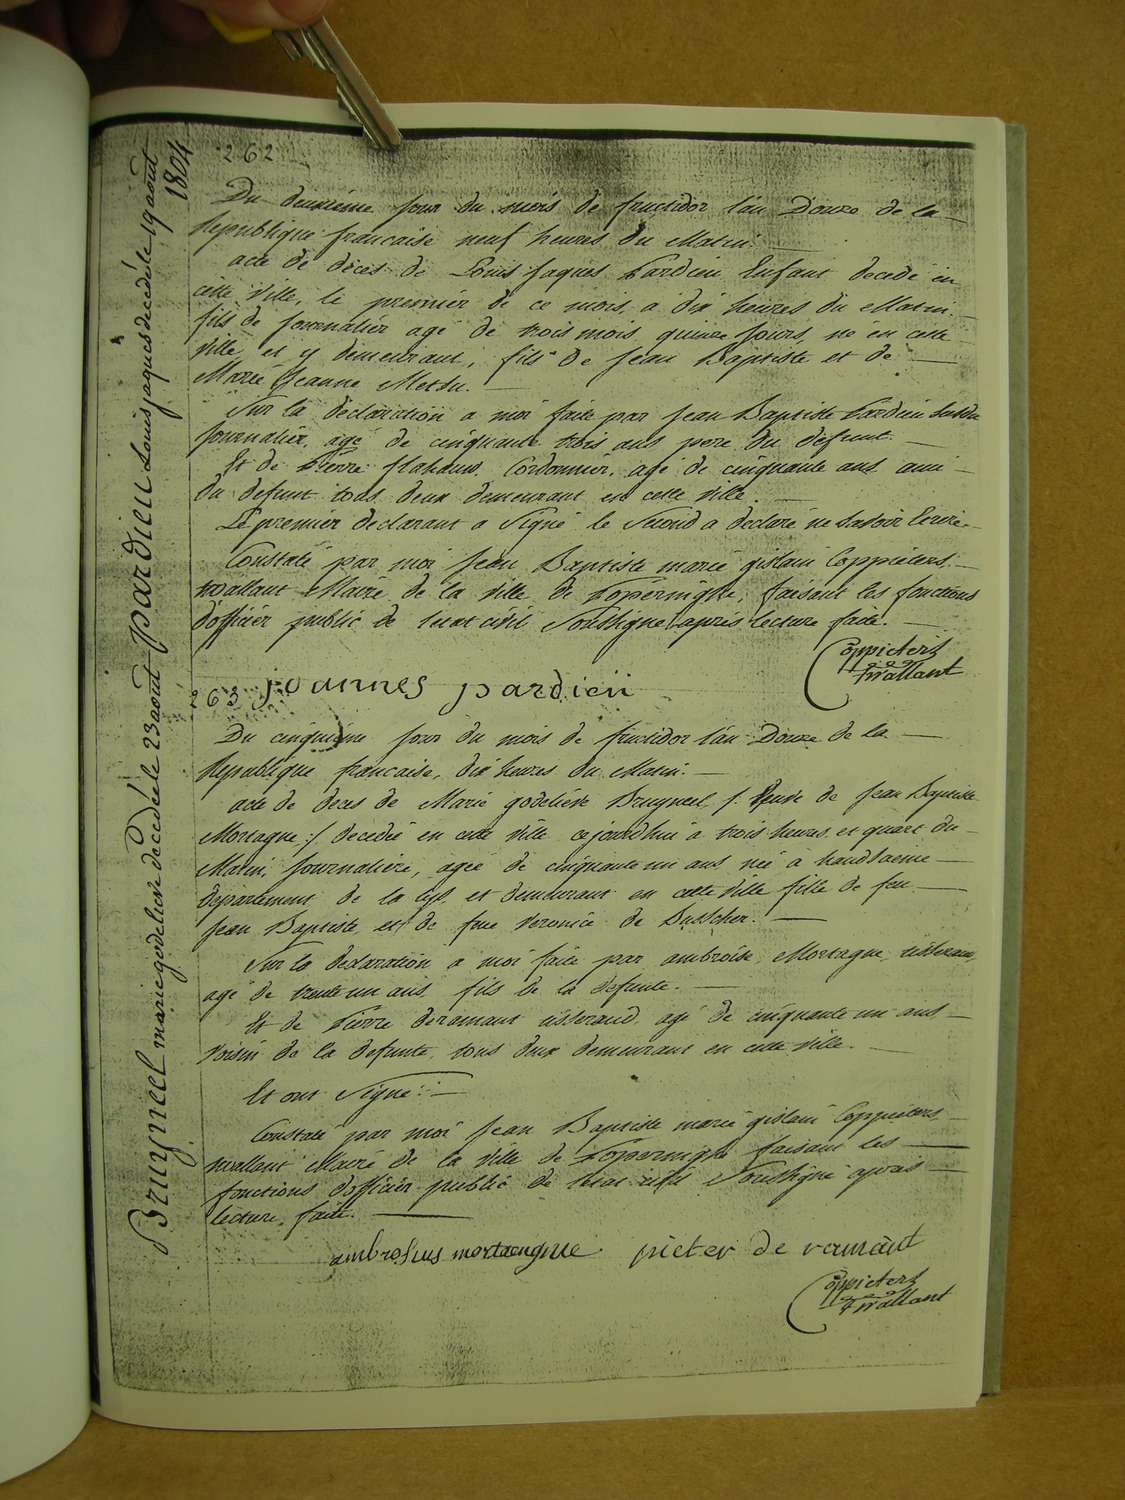 262
Du deuxième jour du mois de fructidor l'an Douze de la
Republique francaise neuf heures du Matin.
acte de déces de Louis Jaques Pardieu Enfant decedé en
cette Ville, le premier de ce mois, a dix heures du Matin
fils de journalier agé de trois mois quinze jours, né en cette
ville et y demeurant, fils de Jean Baptiste et de
Marie Jeanne Metsu.
Sur la déclaration a moi faite par Jean Baptiste Pardieu
journalier, agé de cinquante trois ans pere du defunt.
Et de Pierre Cordonnier, agé de cinquante ans ami
du defunt tous deux demeurant en cette ville.
Le premier declarant a Signé le Second a declaré ne Savoir Ecrire
Constaté par moi Jean Baptiste marie gislain Coppieters
wallant Maire de la ville de Poperinghe, faisant les fonctions
d'officier public de l'etat civil Soussigné après lecture faite.
Coppieters
Twallant
joannes pardieu
263
Du cinquième jour du mois de fructidor l'an Douze de la
Republique francaise, dix heures du Matin.
acte de deces de Marie godelieve Bruyneel /: Veuve de Jean Baptiste
Mortagne :/ decedée en cette ville cejourdhui a trois heures et quart du
Matin, journalière, agée de cinquante un ans née à handsaeme
departement de la Lys, et demeurant en cette ville fille de feu
Jean Baptiste et de feue Veronice de Busscher.
Sur la declaration a moi faite par ambroise Mortagne, tisseran,
agé de trente un ans fils de la defunte.
Et de Pierre deramaut tisserand agé de cinquante un ans
Voisin de la defunte, tous deux demeurant en cette ville.
Et ont Signé :
Constaté par moi Jean Baptiste marie gislain Coppieters
wallant Maire de la ville de Poperinghe faisant les
fonctions d'officier public de l'etat civil Soussigné après
lecture, faite.
ambrosius mortaengne pieter de ramaut
Coppieters
Twallant
Bruyneel marie godelieve décédée le 23 aout Pardieu Louis jaques décédé le 19 aout
1804